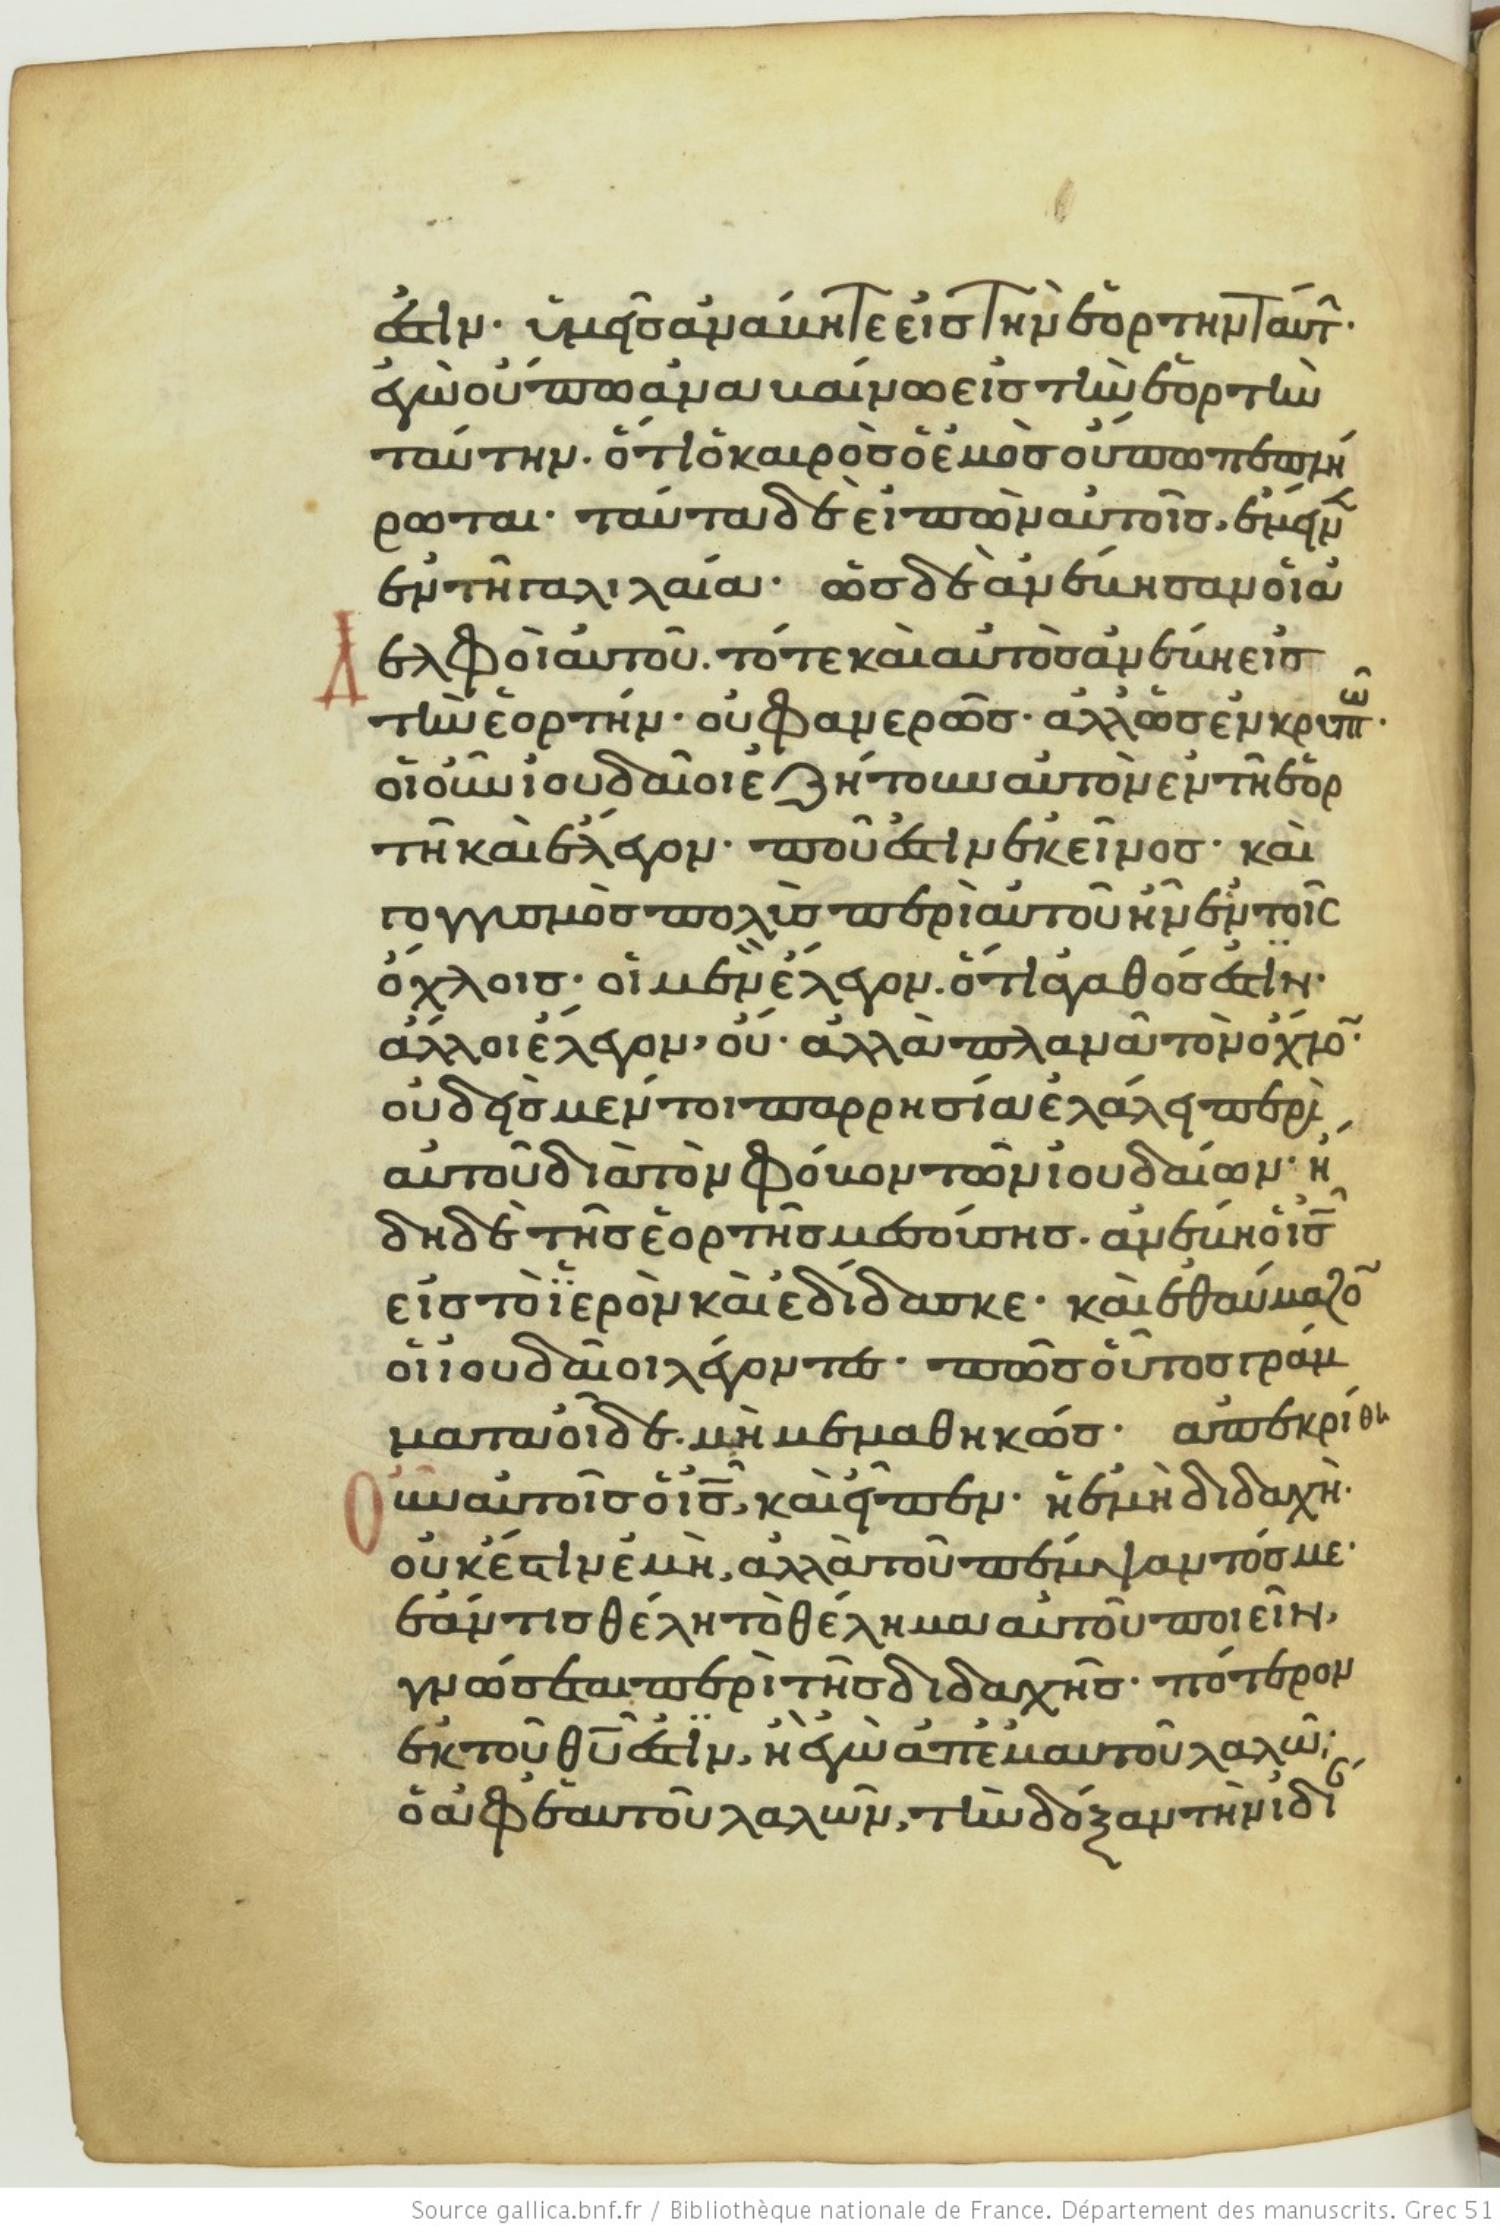 ἐστιν· ὑμεῖς ἀνάβητε εἰς τὴν ἑορτην ταύτ·
ἐγὼ οὔπω ἀναβαίνω εἰς τὴν ἑορτὴν
ταύτην· ὅτι ὁ καιρὸς ὁ ἐμὸς οὔπω πεπλή
ρωται· ταῦτα δὲ εἰπὼν αὐτοῖς, ἔμειν
ἐν τῇ γαλιλαία· ὡς δὲ ἀνέβησαν οἱ ἀ
Δ ελφοὶ αὐτοῦ. τότε καὶ αὐτὸς ἀνέβη εἰς
τὴν ἑορτήν· οὐ φανερῶς· ἀλλ' ὡς ἐν κρυπτῶ·
οἱ οὖν ἰουδαῖοι ἐζήτουν αὐτὸν ἐν τῇ ἑορ
τῇ καὶ ἔλεγον· ποῦ ἐστιν ἐκεῖνος· καὶ
γογγυσμὸς πολὺς περὶ αὐτοῦ ἦν ἐν τοῖς
ὄχλοις· οἱ μὲν ἔλεγον. ὅτι ἀγαθός ἐστϊν·
ἄλλοι ἔλεγον, οὔ· ἀλλὰ πλανᾶ τὸν ὄχλο·
οὐδεὶς μέντοι παρρησία ἐλάλει περὶ
αὐτοῦ διὰ τὸν φόβον τῶν ἰουδαίων· ἤ
δη δὲ τῆς ἑορτῆς μεσούσης. ἀνέβη ὁ ις
εἰς τὸ ϊερὸν καὶ ἐδίδασκε· καὶ ἐθαύμαζο
οἱ ἰουδαῖοι λέγοντες· πῶς οὗτος γράμ
ματα οἶδε. μὴ μεμαθηκώς· ἀπεκρίθη
Ο ὖν αὐτοῖς ὁ ις, καὶ εἶπεν· ἡ ἐμὴ διδαχὴ·
οὐκ έστιν ἐμὴ, ἀλλὰ τοῦ πέμψαντός με·
ἐάν τις θέλη τὸ θέλημα αὐτοῦ ποιεῖν,
γνώσεται περὶ τῆς διδαχῆς· πότερον
ἐκ τοῦ θυ ἐστϊν, ἢ ἐγὼ ἀπ' ἐμαυτοῦ λαλῶ;
ὁ ἀφ' ἑαυτοῦ λαλῶν, τὴν δόξαν τὴν ἰδί
Source gallica.bnf.fr / Bibliothèque nationale de France. Département des manuscrits. Grec 51